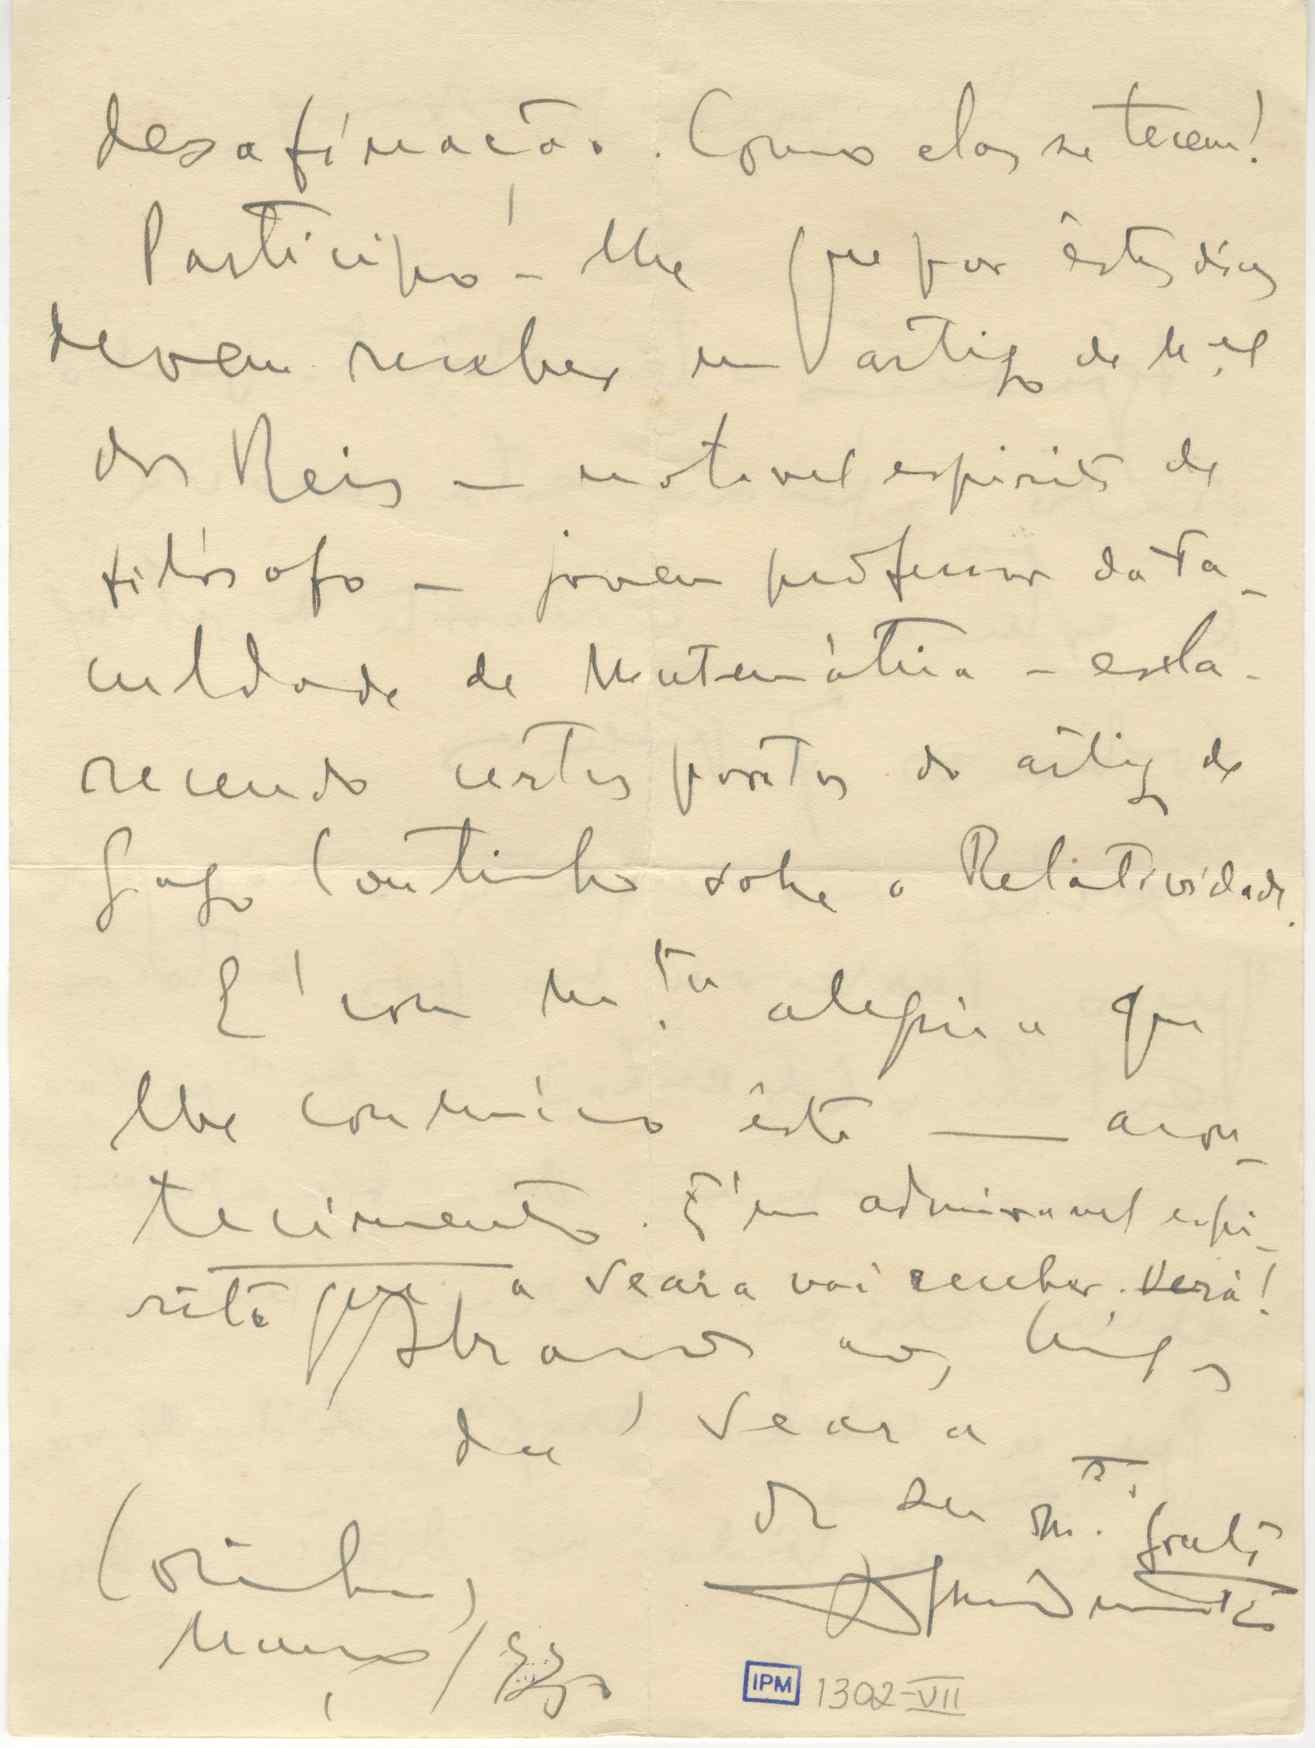 desafinação. Como elas se tecem!
Participo-lhe que por êstes dias
devem receber um artigo de M.el
dos Reis — notavel espirito de
filósofo — jovem professor da Fa-
culdade de Matemática — escla-
recendo certos pontos do artigo de
Gago Coutinho sobre a Relatividade.
É com m.ta alegria que
lhe comunico êste — acon-
tecimento. É um admiravel espi-
rito que a Seara vai receber. Verá!
Abraços aos Amigos
da Seara
do seu m.to grato
Coimbra,
Março /
IPM 1302-VII